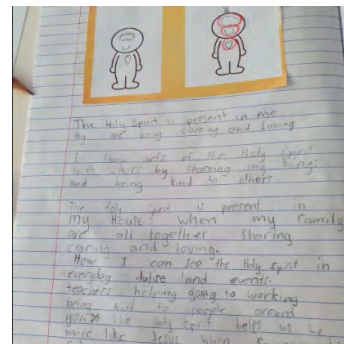 The Holy Spirit is present in me
by me being caring and loving
I show acts of the Holy Spirit
with others by choosing my
and being kind to others
The Holy Spirit is present in
my House when my family
are all together sharing
caring and loving.
How I can see the Holy spirit in
everyday and events.
teachers helping going to working
being kind to people around
you the Holy spirit helps us be
more like Jesus when